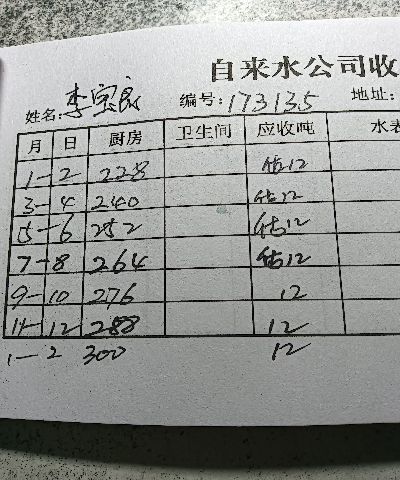 自来水公司收
姓名:李宝良 编号:173135 地址:
月 日 厨房 卫生间 应收吨 水表
1-2 228 估12
3-4 240 估12
5-6 252 估12
7-8 264 估12
9-10 276 12
11-12 288 12
1-2 300 12